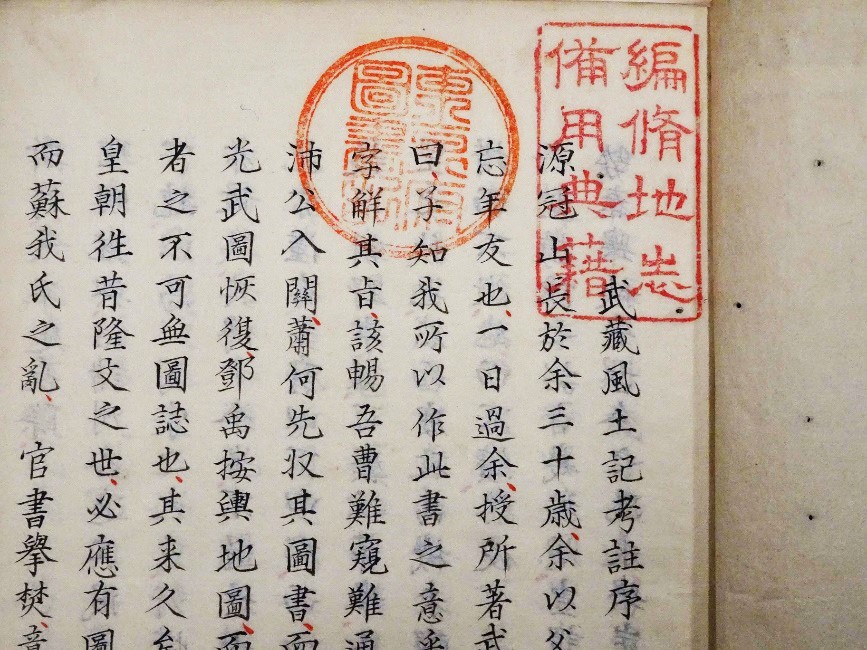 編脩地志
備用典籍
東京府
圖書
武藏風土記考註序
源冠山長於余三十歲、余以父
忘年友也、一日過余、授所著武
曰、子知我所以作此書之意乎
字解其旨、該暢吾曹難窺難通
沛公入關、蕭何先収其圖書、而
光武圖恢復、鄧禹按輿地圖、而
者之不可無圖誌也、其来久矣
皇朝徃昔隆文之世、必應有圖
而蘇我氏之亂、官書擧焚、